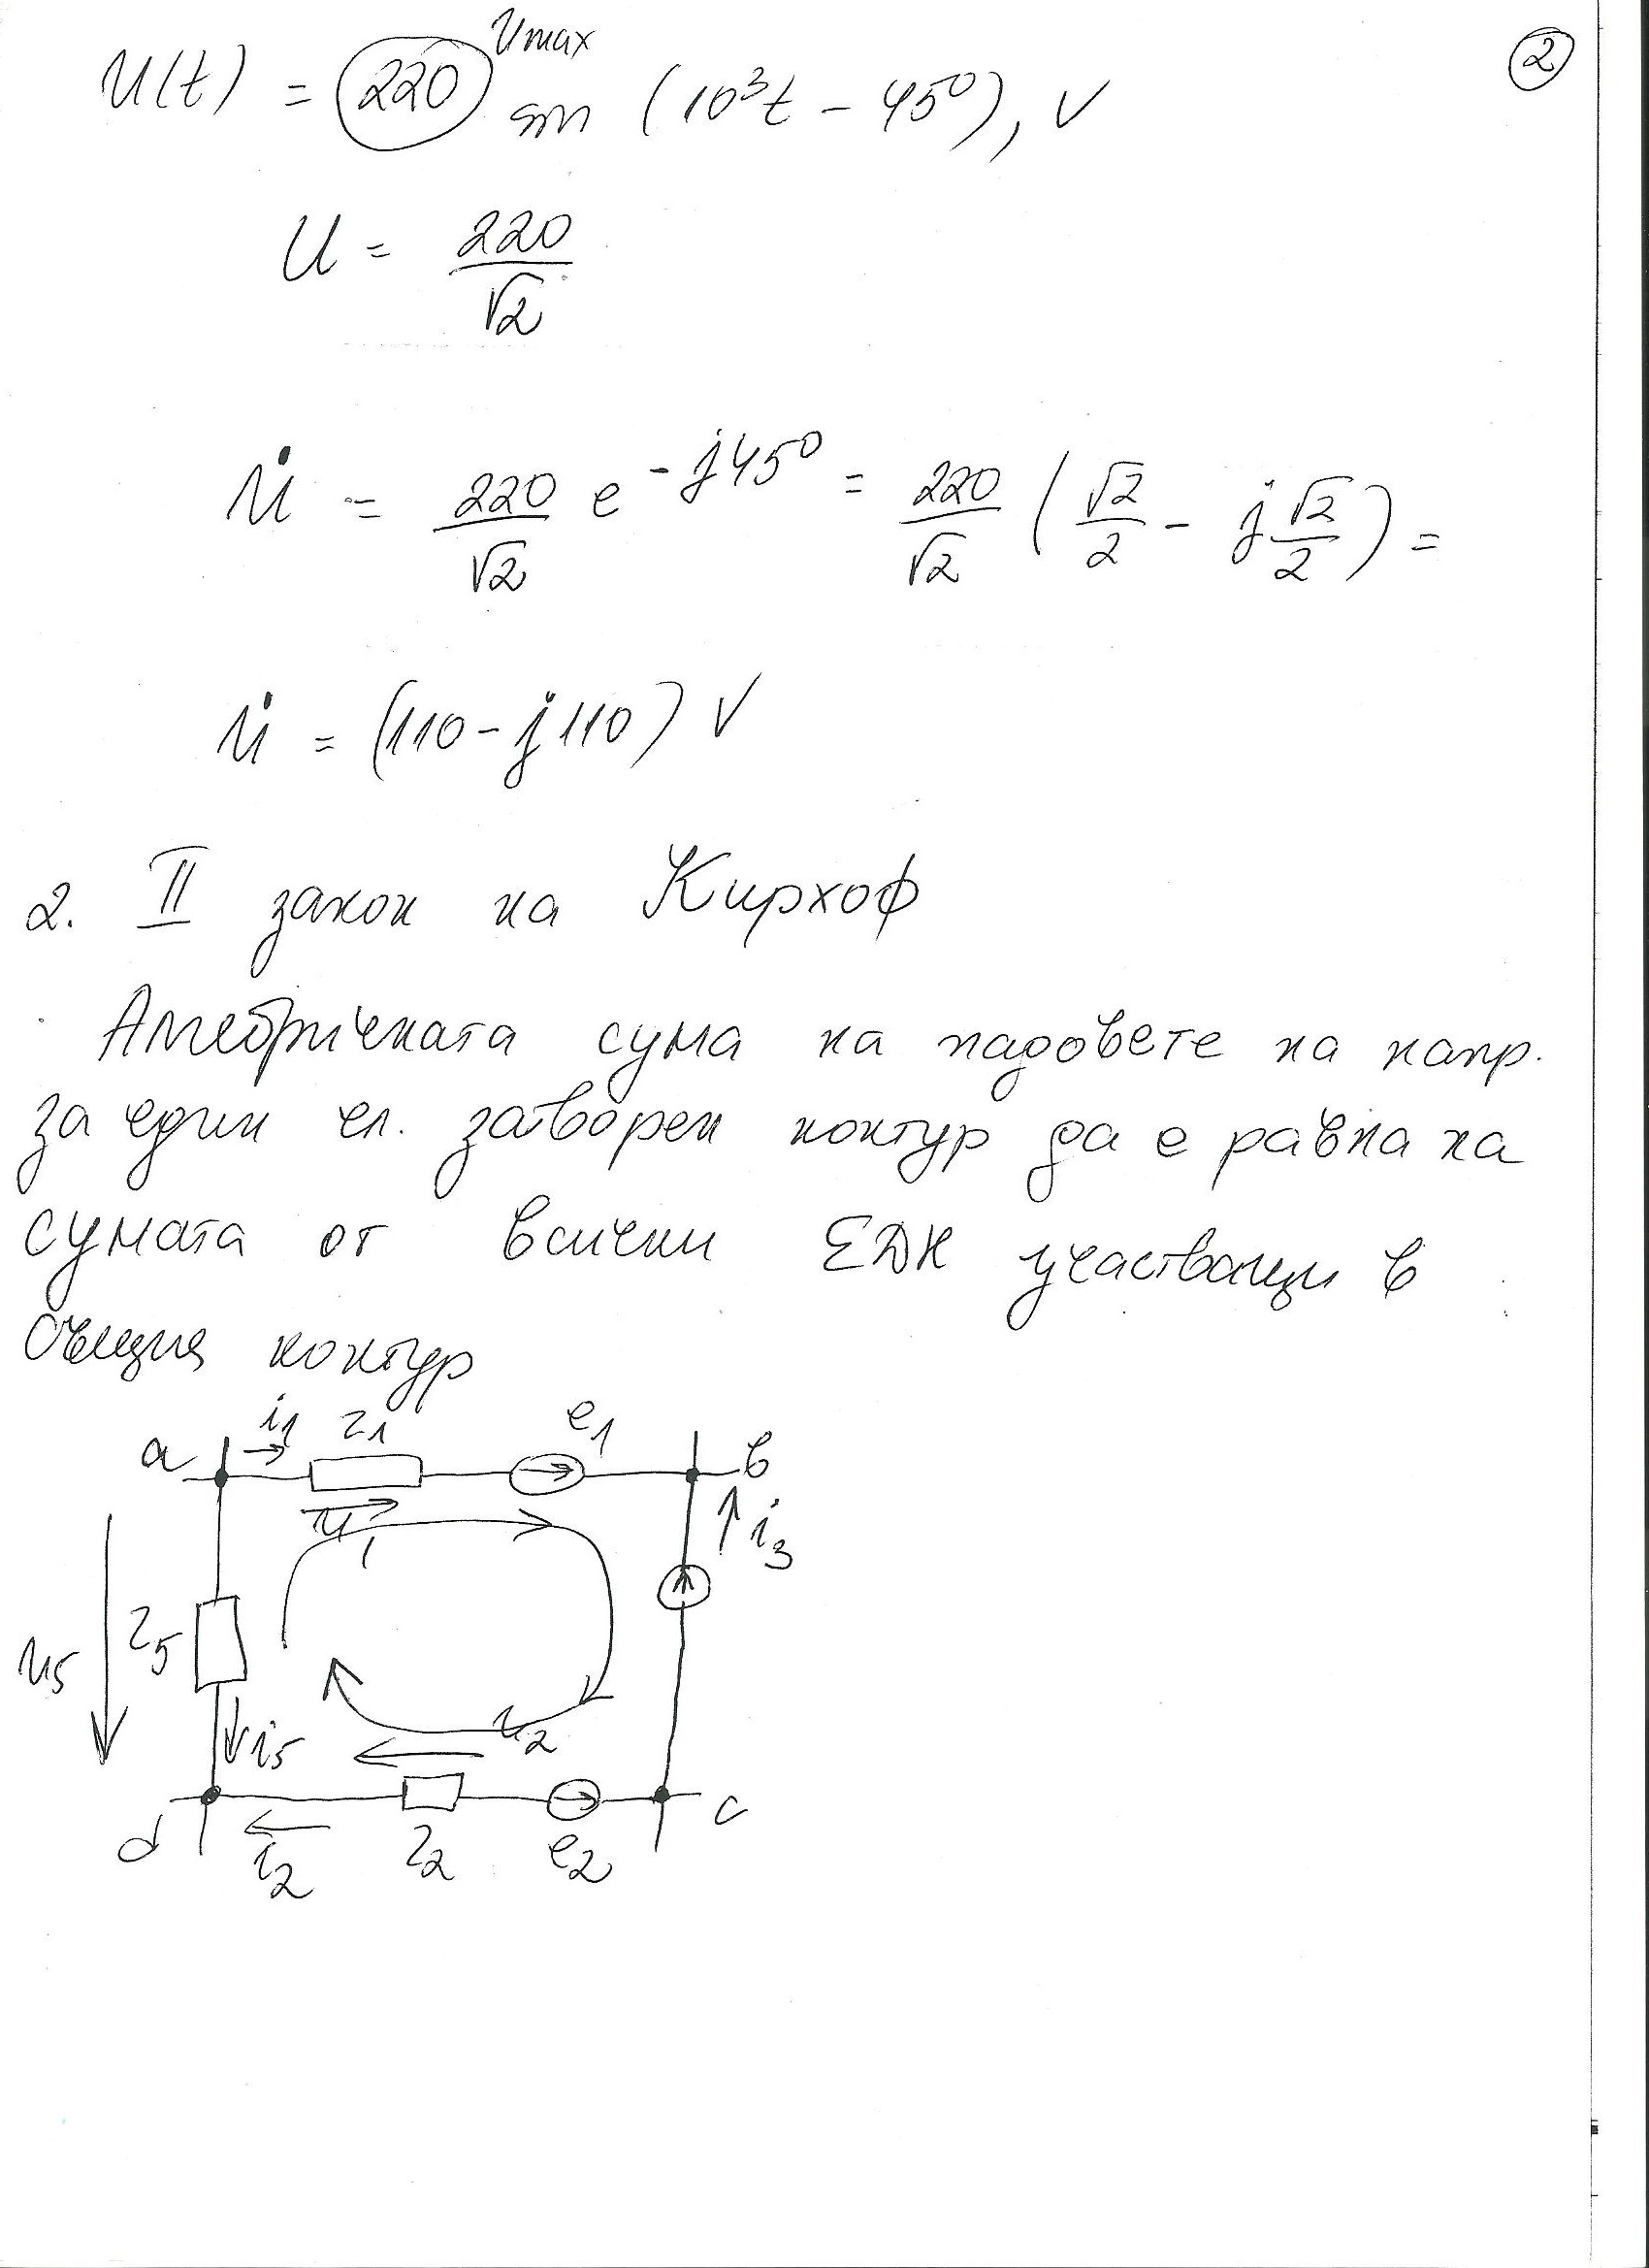 2
Umax
U(t) = 220 sin (10³t - 45°), V
U = 220/√2
U̇ = 220/√2 e^(-j45°) = 220/√2 (√2/2 - j√2/2) =
U̇ = (110 - j110) V
2. II закон на Кирхоф
Алгебричната сума на падовете на напр.
за един ел. затворен контур да е равна на
сумата от всички ЕДН участващи в
същия контур
a i1 z1 e1 b
u1
i3
u5 z5
i5 u2
d i2 z2 e2 c